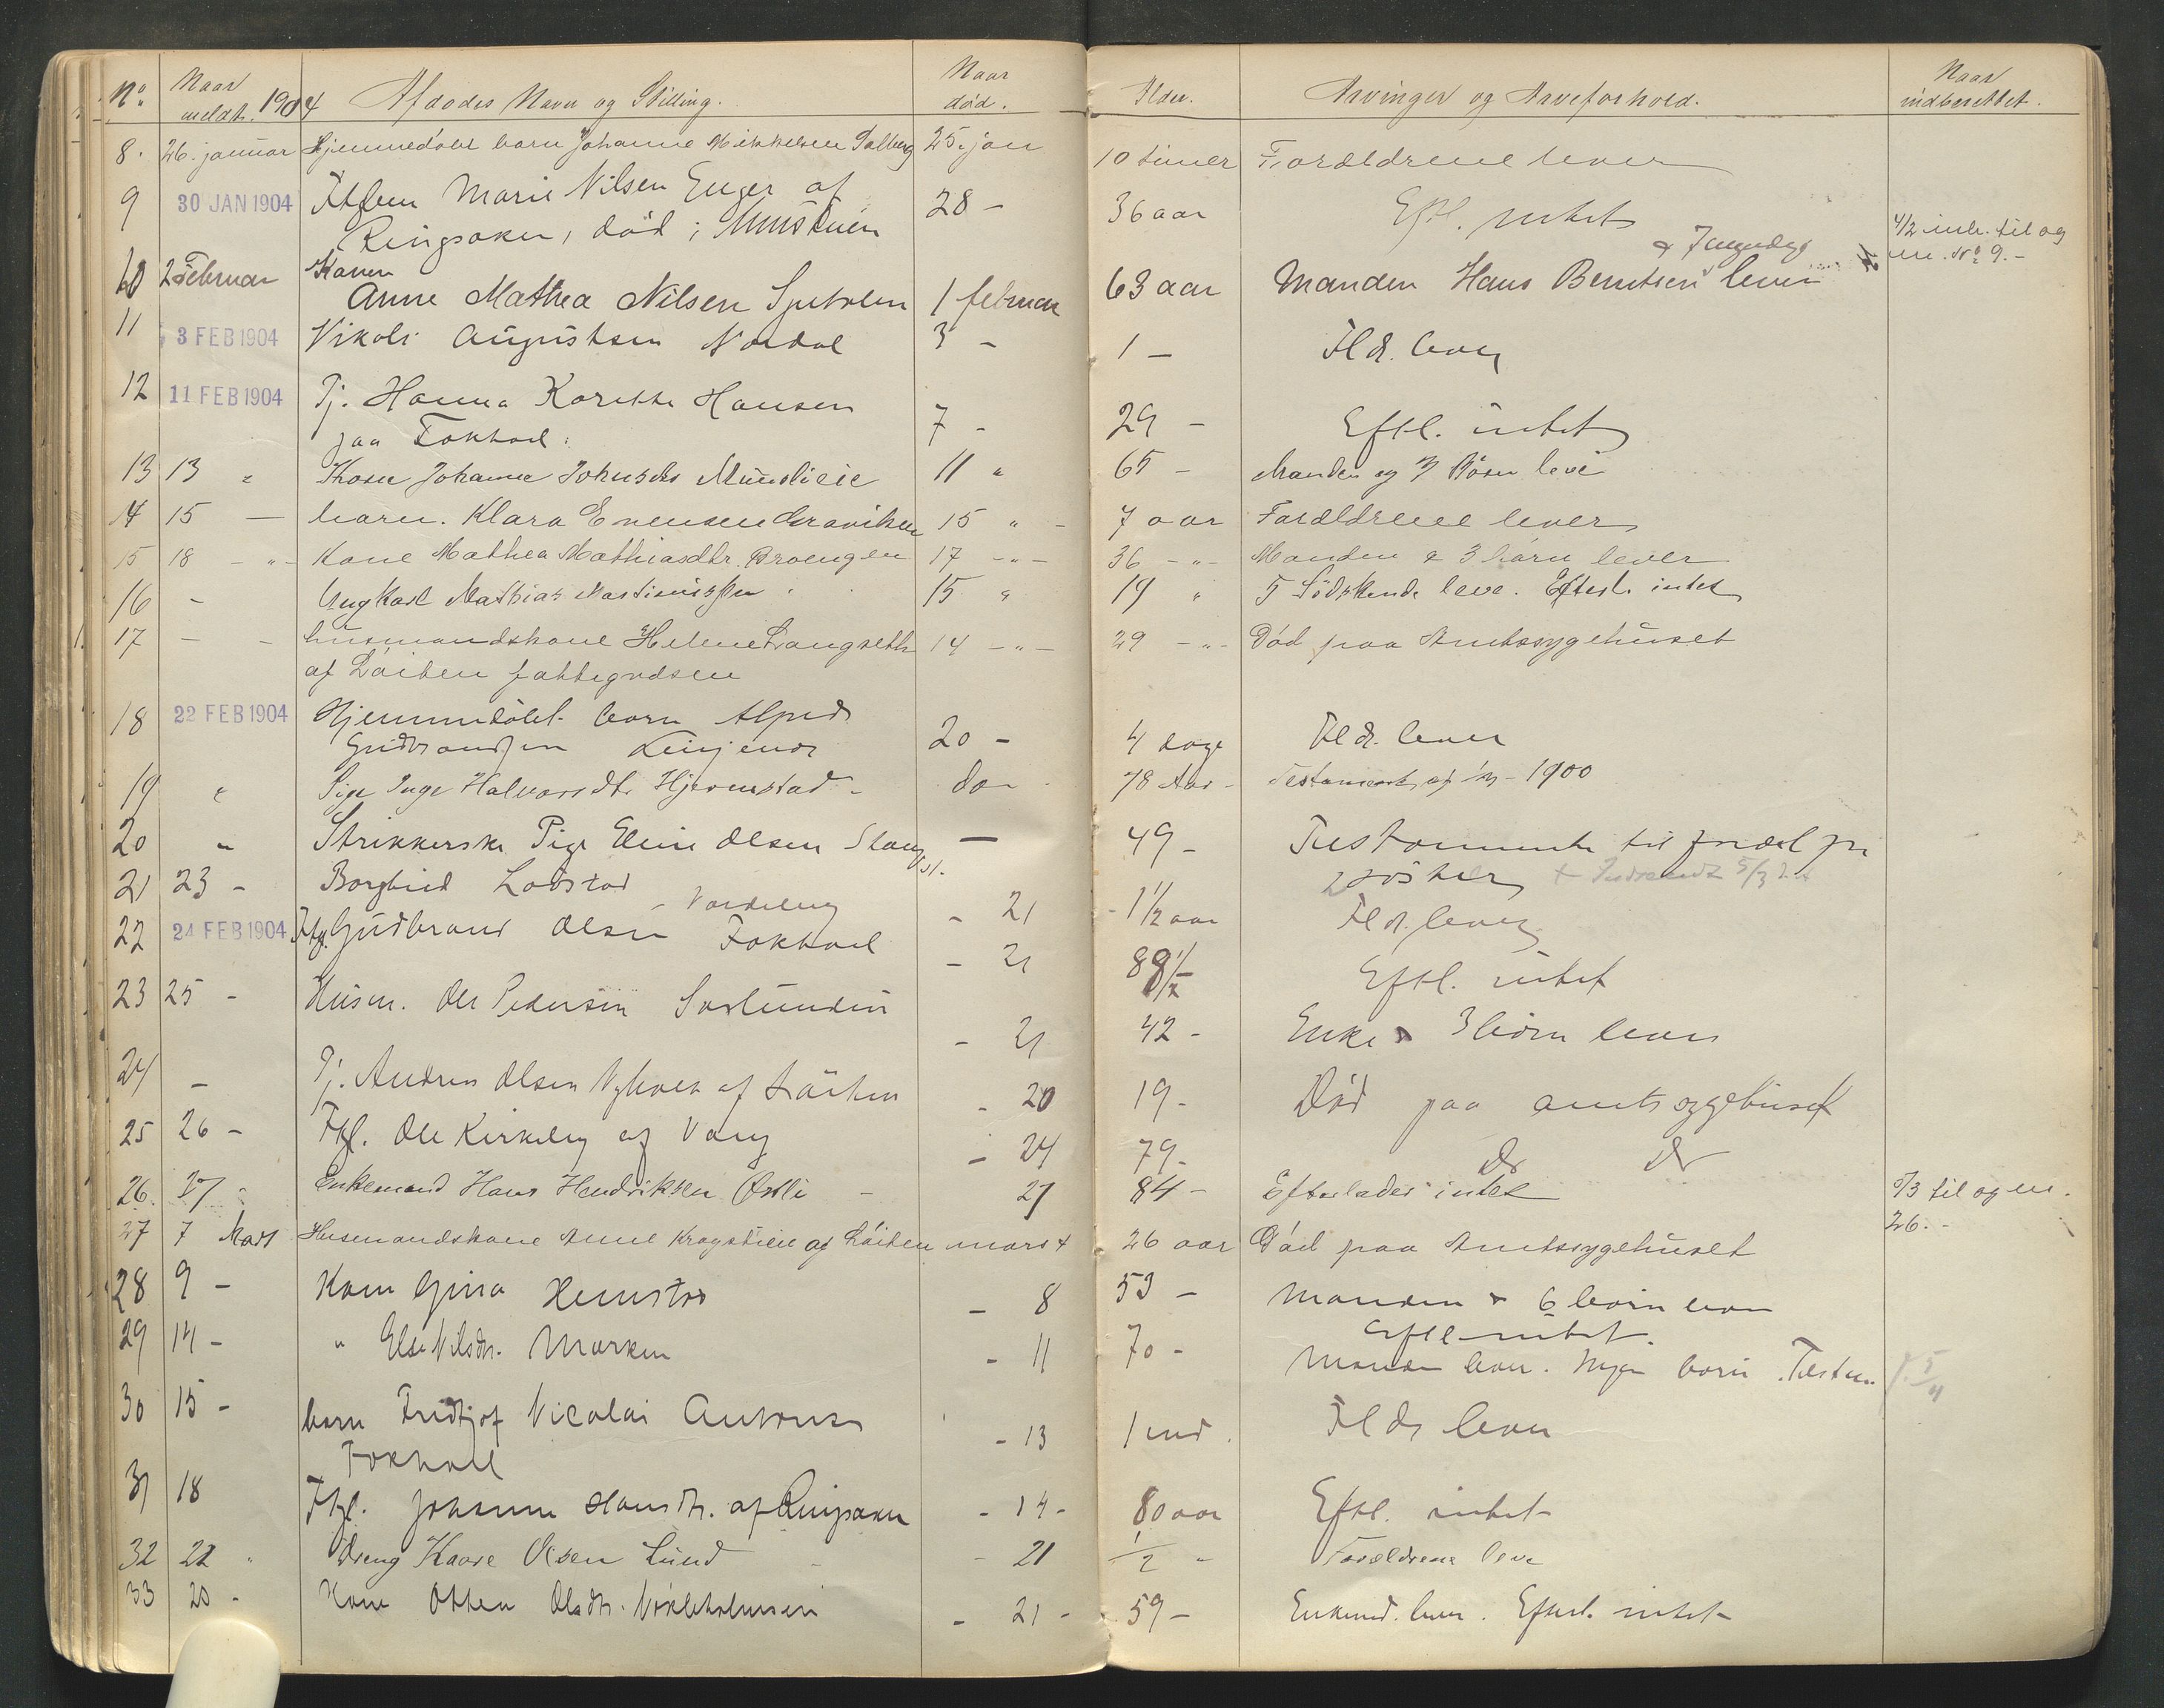 No. Naar meldt. 1904 Afdødes Navn og Stilling. Naar død. Alder. Arvinger og Arveforhold. Naar indberettet.
8. 26. januar Hjemmedøbt barn Johanne Mikkelsen Solberg 25. jan 10 timer Forældrene lever
9 30 JAN 1904 Ftgl. Marie Nilsen Enger af 28 - 36 aar Eftl. intet
Ringsaker, død i
4/2 inb. til og
m. No 9. -
10 2 Februar Konen & 7 myndige
Anne Mathea Nilsen 1 februar 63 aar Manden Hans Berntsen lever
11 3 FEB 1904 Nikoli Augustsen Nordal 3 - 1 - Fldr. lever
12 11 FEB 1904 Pj. Hanna Hansen 7 - 29 - Eftl. intet
paa Fokhol.
13 13 " Kone Johanne Johnsdtr 11 " 65 - Manden og 7 Børn leve
14 15 — barn. Klara Evensen Graviken 15 " - 7 aar Forældrene lever
15 18 - " - Kone Mathea Mathiasdtr. Broengen 17 - " - 36 - " - Manden & 3 børn lever
16 - Ungkarl Mathias Martiniussen 15 " 19 " 5 Södskende leve. Efterl. intet
17 - - husmandskone Helene Langseth 14 - " - 29 - " - Død paa Amtssygehuset
af Löiten fattigvæsen
18 22 FEB 1904 Hjemmedøbt barn Alfred
Gudbrandsen 20 - 4 dage Fldr. lever
19 " Pige Inge Halvorsdtr Hjermstad - do - 78 Aar - Testament af 1900
20 " Strikkerske Pige Eline Olsen Stang — 49 - Testamente til fordel for
2 søstre
21 23 - Borghild Lodstad - 21 - 1 1/2 aar Fldr. lever
22 24 FEB 1904 Ftgl. Gudbrand Olsen Fokhol - 21 88 1/2 Eftl. intet
23 25 - Husm. Ole Pedersen - 21 42 - Enke & 3 børn lever
24 - Pj. Andrea Olsen Nyhoel af Löiten - 20 19 - Død paa amtssygehuset
25 26 - Ftgl. Ole Kirkeby af Vang - 24 79 - Do Do
26. 27 " Enkemand Hans Hendriksen Østli - 27 84 - Efterlader intet
5/3 til og m.
26. -
27 7 Mars Husmandskone Anne Krogstieie af Löiten mars 26 aar Død paa Amtssygehuset
28 9 - Kone Gina Hemstad - 8 53 - Manden & 6 børn lever
Eftl. intet.
29 14 - " Else Nilsdtr. Morken - 11 70 - Manden lever. Ingen børn. Testam.
30 15 - barn Fridtjof Nicolai Antonsen - 13 1 md. Fldr lever
Fokhol
31 18 Ftgl. Johanne Hansdtr. af Ringsaker - 14 - 80 aar Eftl. intet
32 22 " Dreng Kaare Olsen Lund - - 21 1/2 " Forældrene leve
33 20 - Kone Othea Olsdtr. - 21 - 59 - Enkemd. lever. Efterl. intet